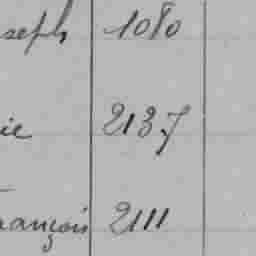 seph 1080
ie 2137
rançois 2111